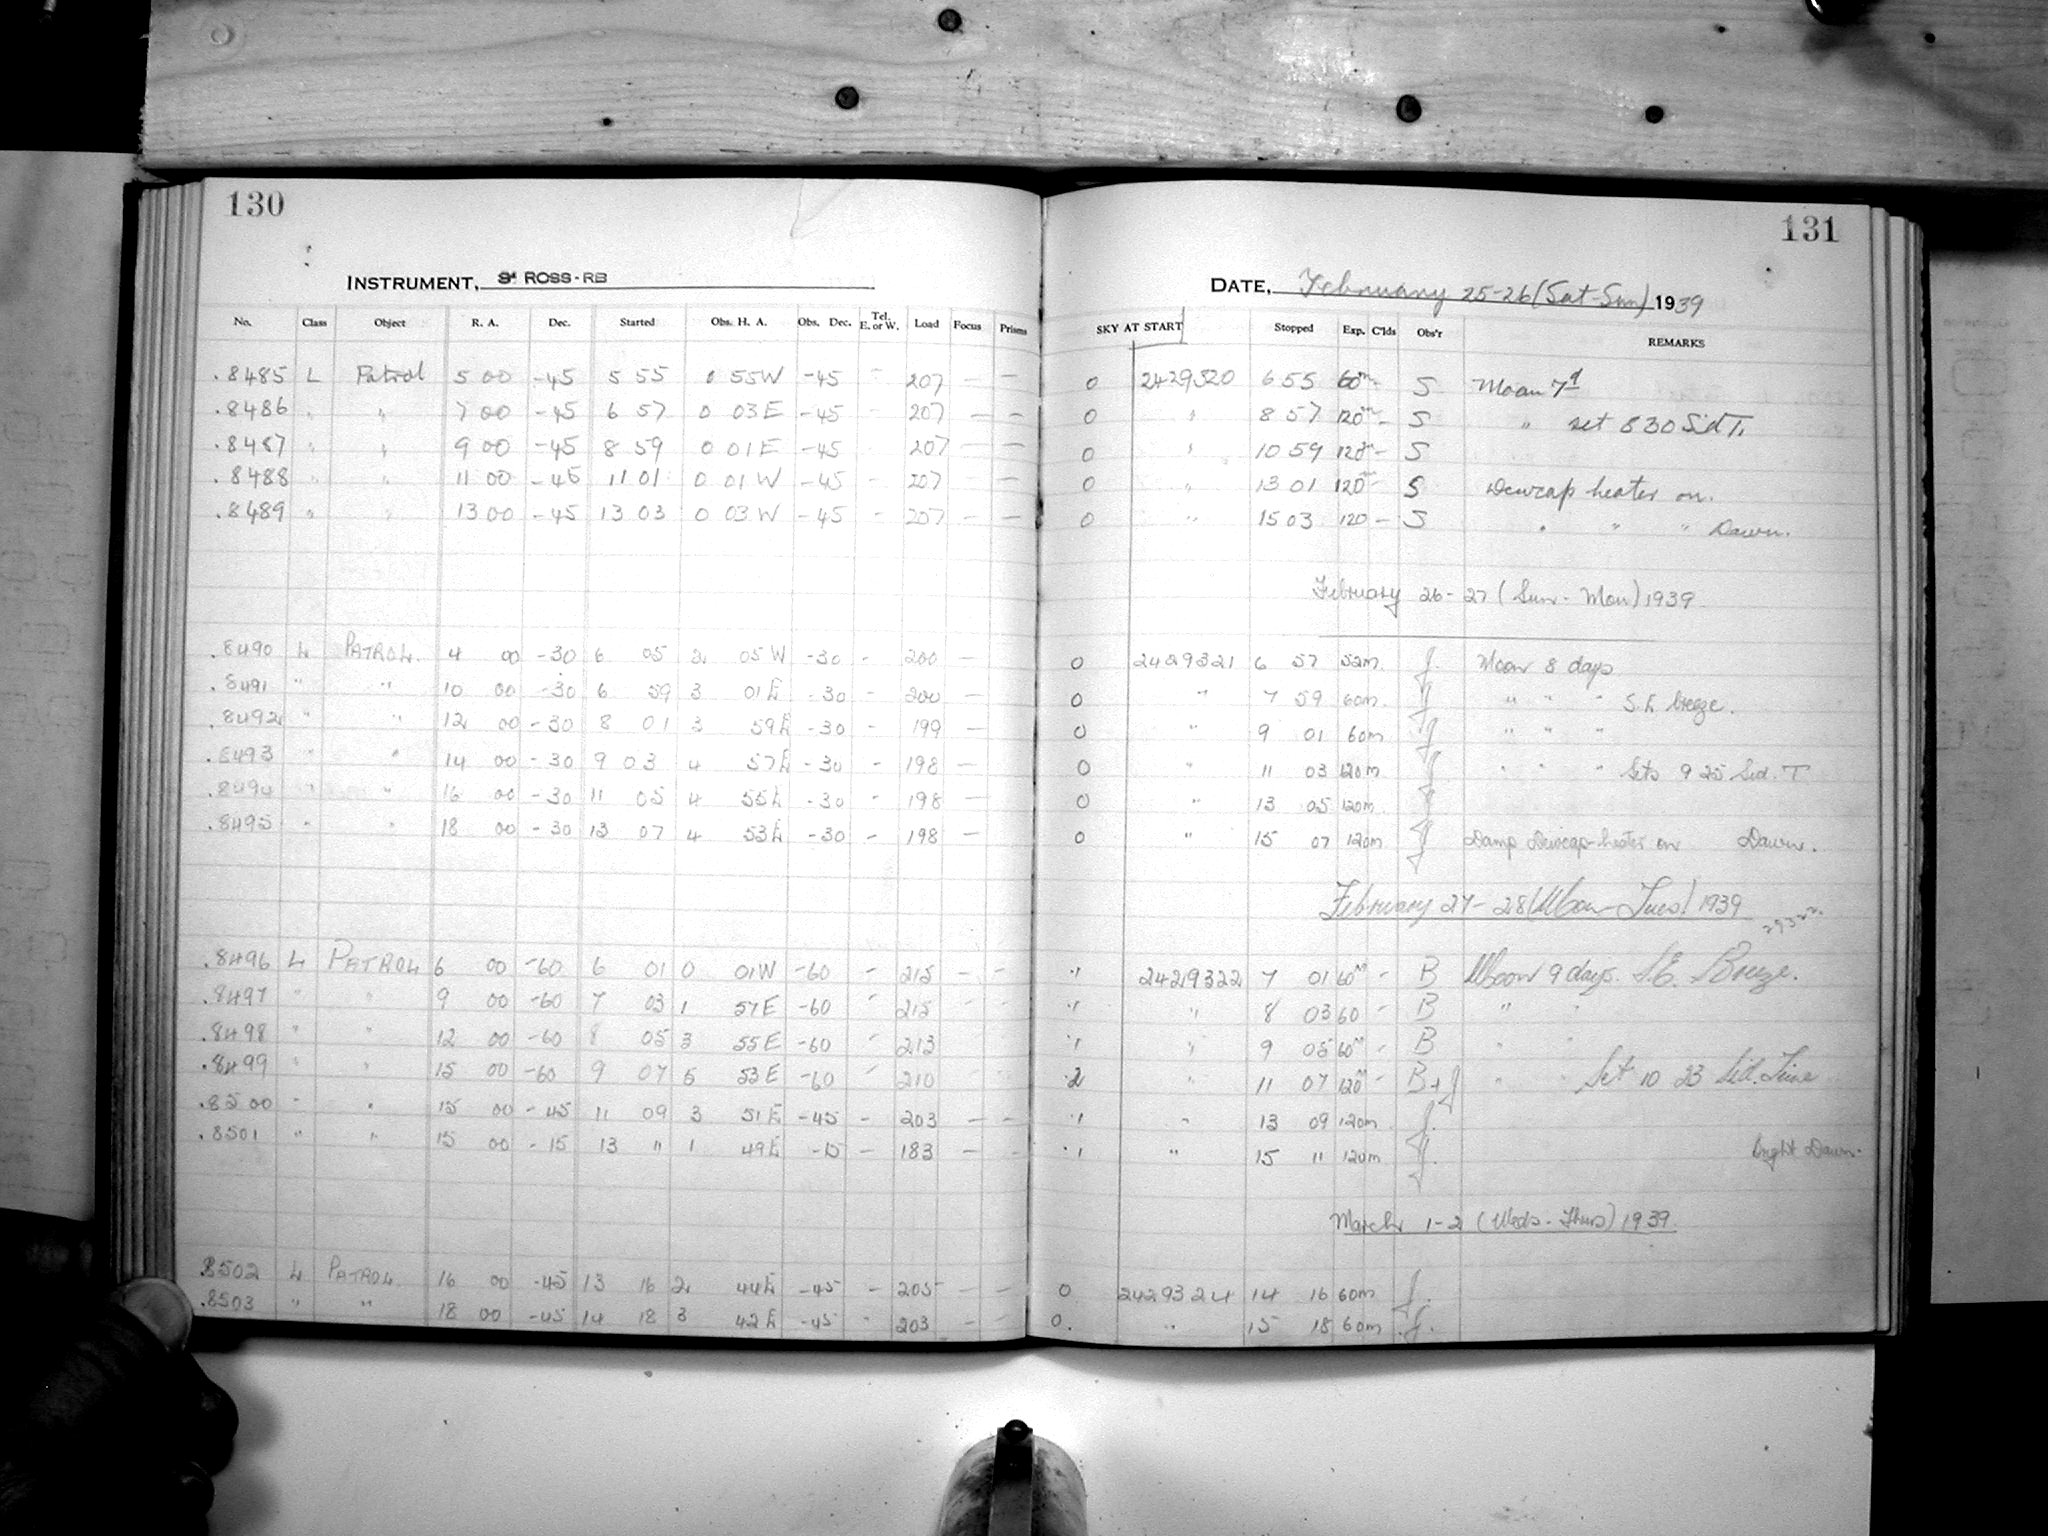 130
INSTRUMENT, ROSS-RB
No. Class Object R. A. Dec. Started Obs. H. A. Obs. Dec. Tel. E. or W. Load Focus Prisms
.8485 L Patrol 5 00 -45 5 55 0 55W -45 - 207 - -
.8486 " " 7 00 -45 6 57 0 03E -45 - 207 - -
.8487 " " 9 00 -45 8 59 0 01E -45 - 207 - -
.8488 " " 11 00 -45 11 01 0 01W -45 - 207 - -
.8489 " " 13 00 -45 13 03 0 03W -45 - 207 - -
.8490 L PATROL 4 00 -30 6 05 2 05W -30 - 200 -
.8491 " " 10 00 -30 6 59 3 01E -30 - 200 -
.8492 " " 12 00 -30 8 01 3 59E -30 - 199 -
.8493 " " 14 00 -30 9 03 4 57E -30 - 198 -
.8494 " " 16 00 -30 11 05 4 55E -30 - 198 -
.8495 " " 18 00 -30 13 07 4 53E -30 - 198 -
.8496 L PATROL 6 00 -60 6 01 0 01W -60 - 215 - -
.8497 " " 9 00 -60 7 03 1 57E -60 - 215 - -
.8498 " " 12 00 -60 8 05 3 55E -60 - 213
.8499 " " 15 00 -60 9 07 5 53E -60 - 210
.8500 " " 15 00 -45 11 09 3 51E -45 - 203 - -
.8501 " " 15 00 -15 13 11 1 49E -15 - 183 - -
8502 L PATROL 16 00 -45 13 16 2 44E -45 - 205 - -
.8503 " " 18 00 -45 14 18 3 42E -45 - 203 - -
131
DATE, February 25-26 (Sat-Sun) 1939
SKY AT START Stopped Exp. C'lds Obs'r REMARKS
0 2429320 6 55 60m - S Moon 7d
0 " 8 57 120m - S " set 8 30 Sid T.
0 " 10 59 120m - S
0 " 13 01 120m - S Dewcap heater on.
0 " 15 03 120 - S " " " Dawn.
February 26-27 (Sun-Mon) 1939
0 2429321 6 57 52m. J. Moon 8 days
0 " 7 59 60m. J " " " S.E. breeze.
0 " 9 01 60m J " " "
0 " 11 03 120m J " " " Sets 9 25 Sid. T
0 " 13 05 120m. J
0 " 15 07 120m J Damp Dewcap-heater on Dawn.
February 27-28 (Mon-Tues) 1939
29322
.1 2429322 7 01 60m - B Moon 9 days. S.E. Breeze.
.1 " 8 03 60 - B " "
.1 " 9 05 60m - B " "
.2 " 11 07 120m - B+J " " Set 10 23 Sid. Time
.1 " 13 09 120m J.
.1 " 15 11 120m J. bright Dawn.
March 1-2 (Weds-Thurs) 1939
0 2429324 14 16 60m J.
0. " 15 18 60m J.